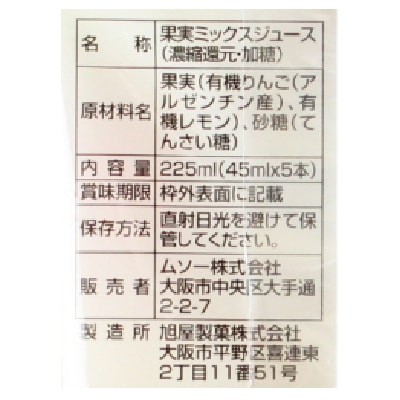 名称 果実ミックスジュース
(濃縮還元・加糖)
原材料名 果実(有機りんご(ア
ルゼンチン産)、有
機レモン)、砂糖(て
んさい糖)
内容量 225ml(45ml×5本)
賞味期限 枠外表面に記載
保存方法 直射日光を避けて保
管してください。
販売者 ムソー株式会社
大阪市中央区大手通
2-2-7
製造所 旭屋製菓株式会社
大阪市平野区喜連東
2丁目11番51号